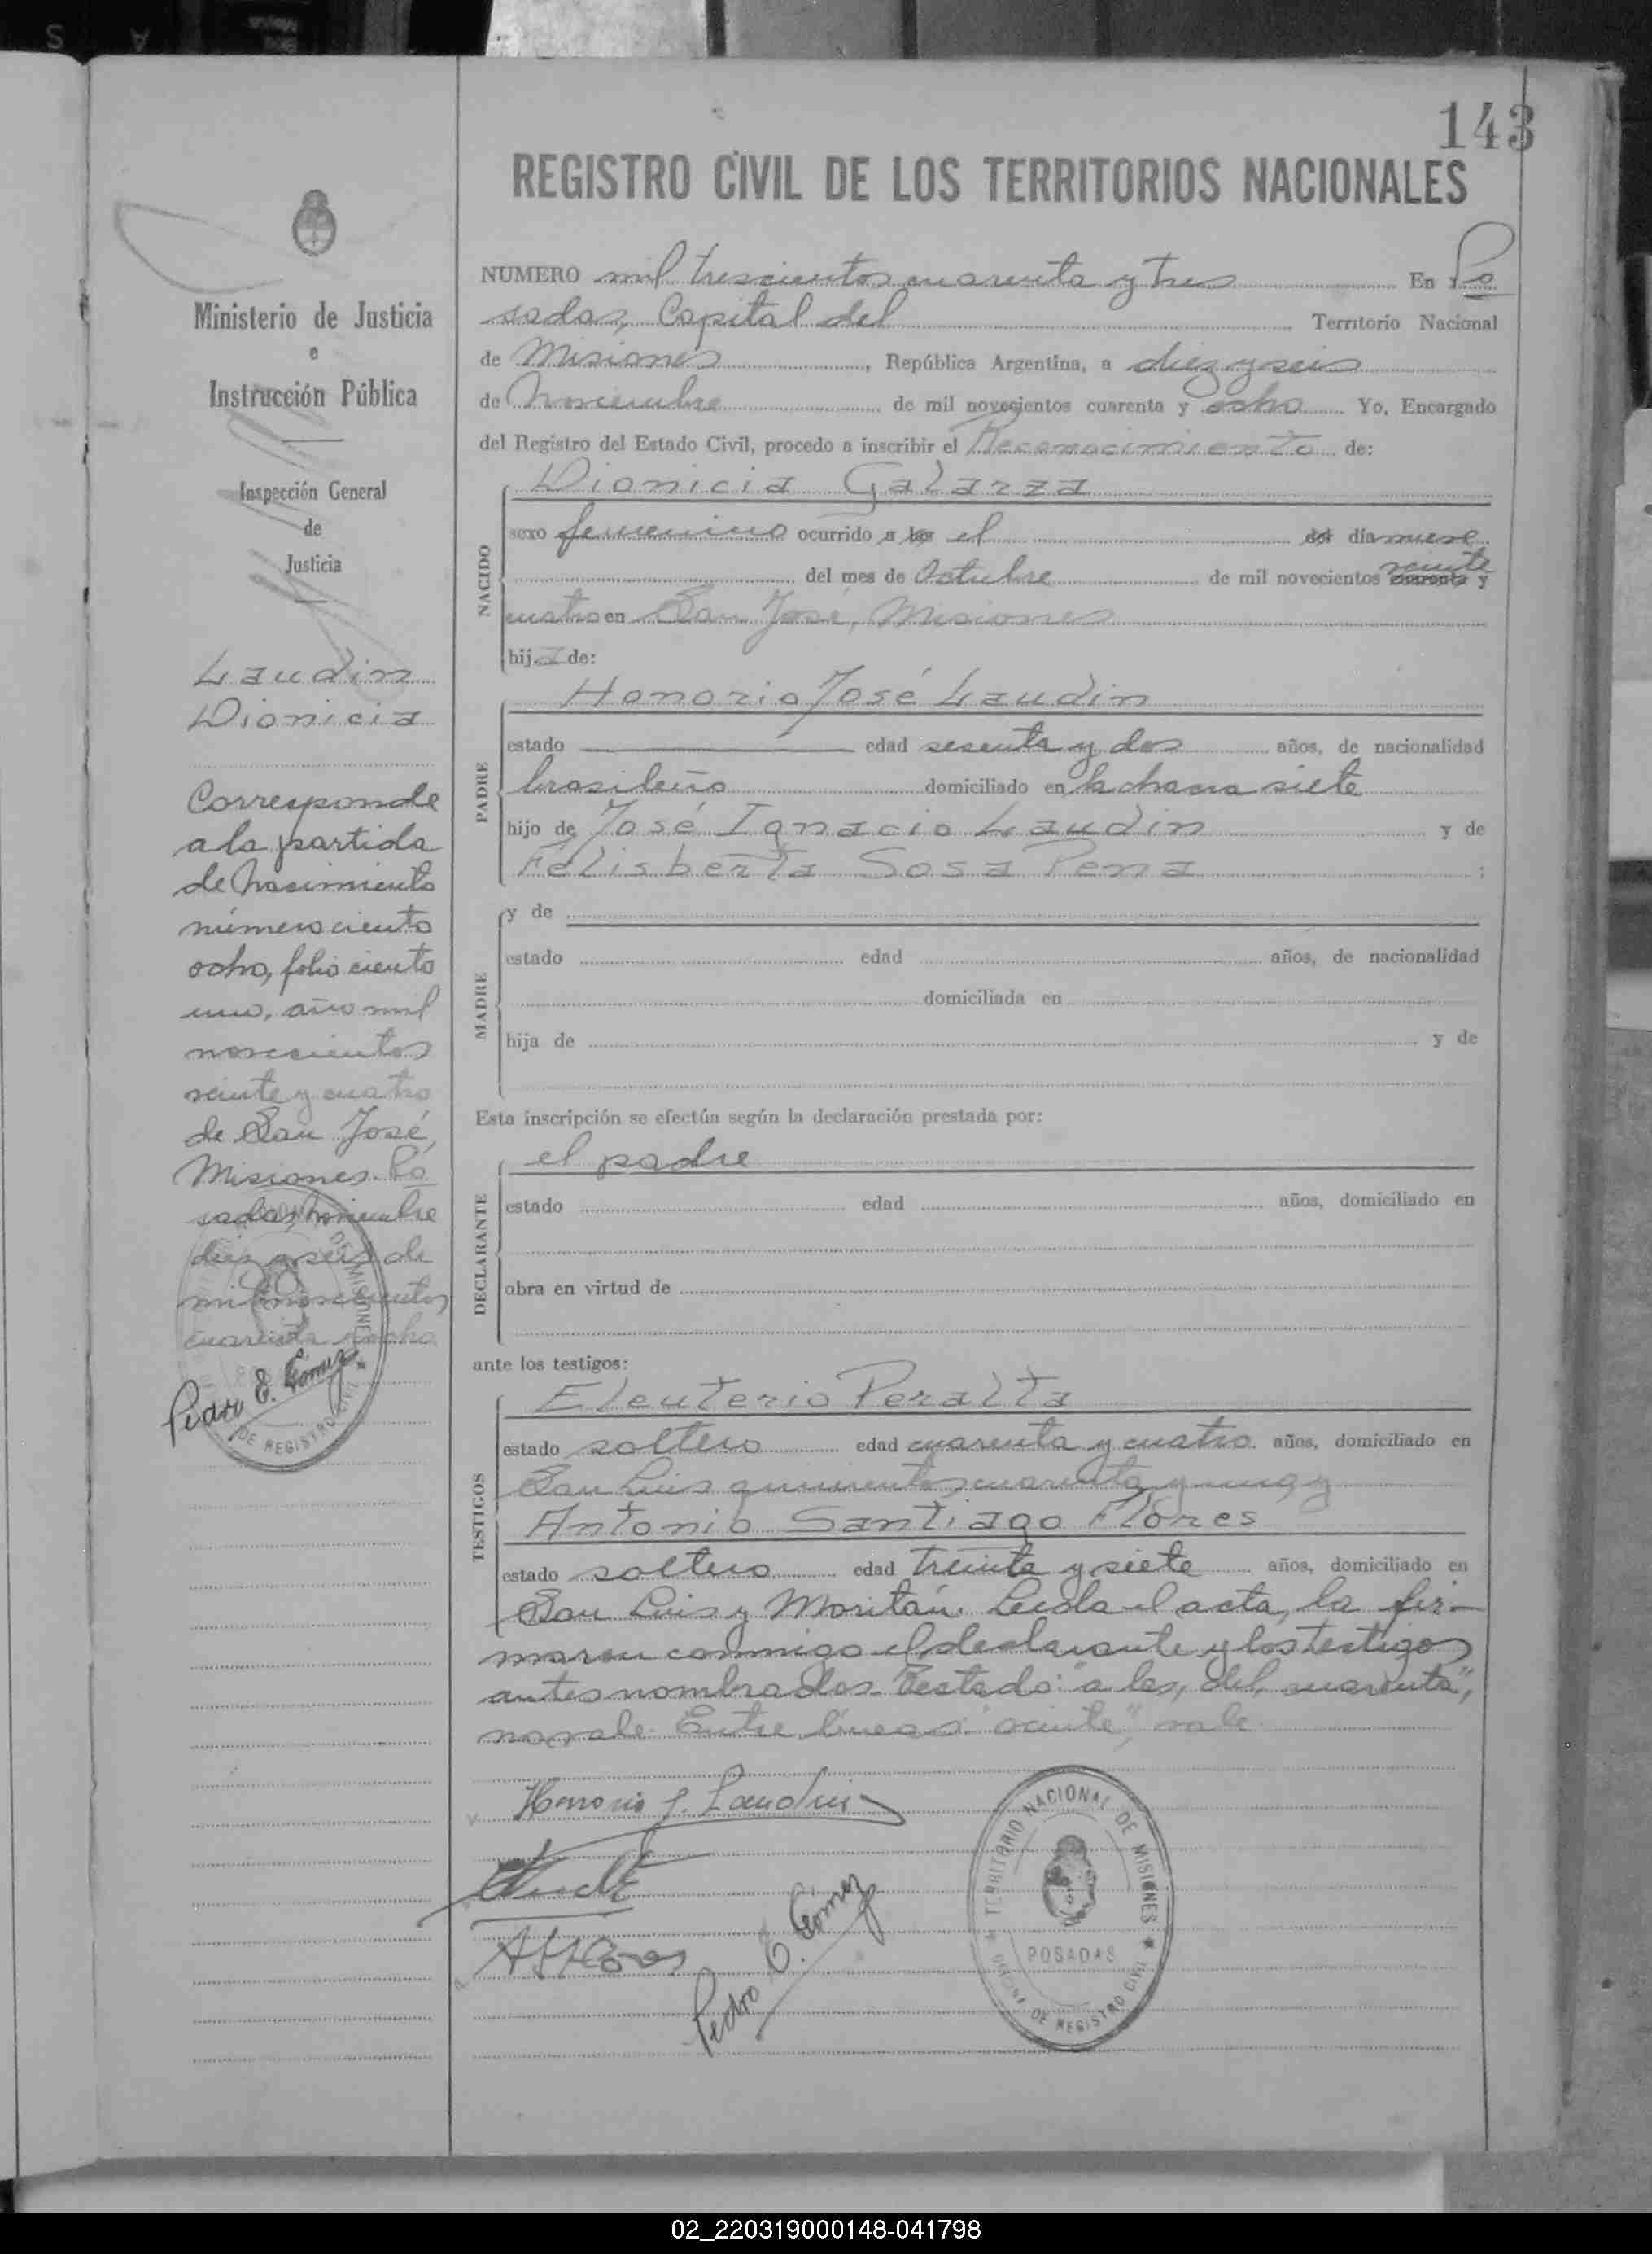 143
REGISTRO CIVIL DE LOS TERRITORIOS NACIONALES
NUMERO mil trescientos cuarenta y tres En Po
sadas, Capital del Territorio Nacional
de Misiones, República Argentina, a diez y seis
de Noviembre de mil novecientos cuarenta y ocho Yo, Encargado
del Registro del Estado Civil, procedo a inscribir el Reconocimiento de:
NACIDO
Dionicia Galarza
sexo femenino ocurrido a las el del día nueve
del mes de Octubre de mil novecientos cuarenta veinte y
cuatro en San José, Misiones
hija de:
PADRE
Honorio José Laudin
estado edad sesenta y dos años, de nacionalidad
brasileño domiciliado en la chacra siete
hijo de José Ignacio Laudin y de
Felisberta Sosa Pena ;
MADRE
y de
estado edad años, de nacionalidad
domiciliada en
hija de y de
Esta inscripción se efectúa según la declaración prestada por:
DECLARANTE
el padre
estado edad años, domiciliado en
obra en virtud de
ante los testigos:
TESTIGOS
Eleuterio Peralta
estado soltero edad cuarenta y cuatro años, domiciliado en
San Luis quinientos cuarenta y uno, y
Antonio Santiago Flores
estado soltero edad treinta y siete años, domiciliado en
San Luis y Moritán. Leída el acta, la fir-
maron conmigo el declarante y los testigos
antes nombrados. Testado: "a las, del, cuarenta",
no vale. Entre líneas: "veinte", vale.
Honorio J. Laudin
Pedro E. Gómez
TERRITORIO NACIONAL DE MISIONES
POSADAS
OFICINA DE REGISTRO CIVIL
Ministerio de Justicia
e
Instrucción Pública
Inspección General
de
Justicia
Laudin
Dionicia
Corresponde
a la partida
de Nacimiento
número ciento
ocho, folio ciento
uno, año mil
novecientos
veinte y cuatro
de San José,
Misiones. Po
sadas, Noviembre
diez y seis de
mil novecientos
cuarenta y ocho
Pedro E. Gómez
DE MISIONES
DE REGISTRO CIVIL
02_220319000148-041798